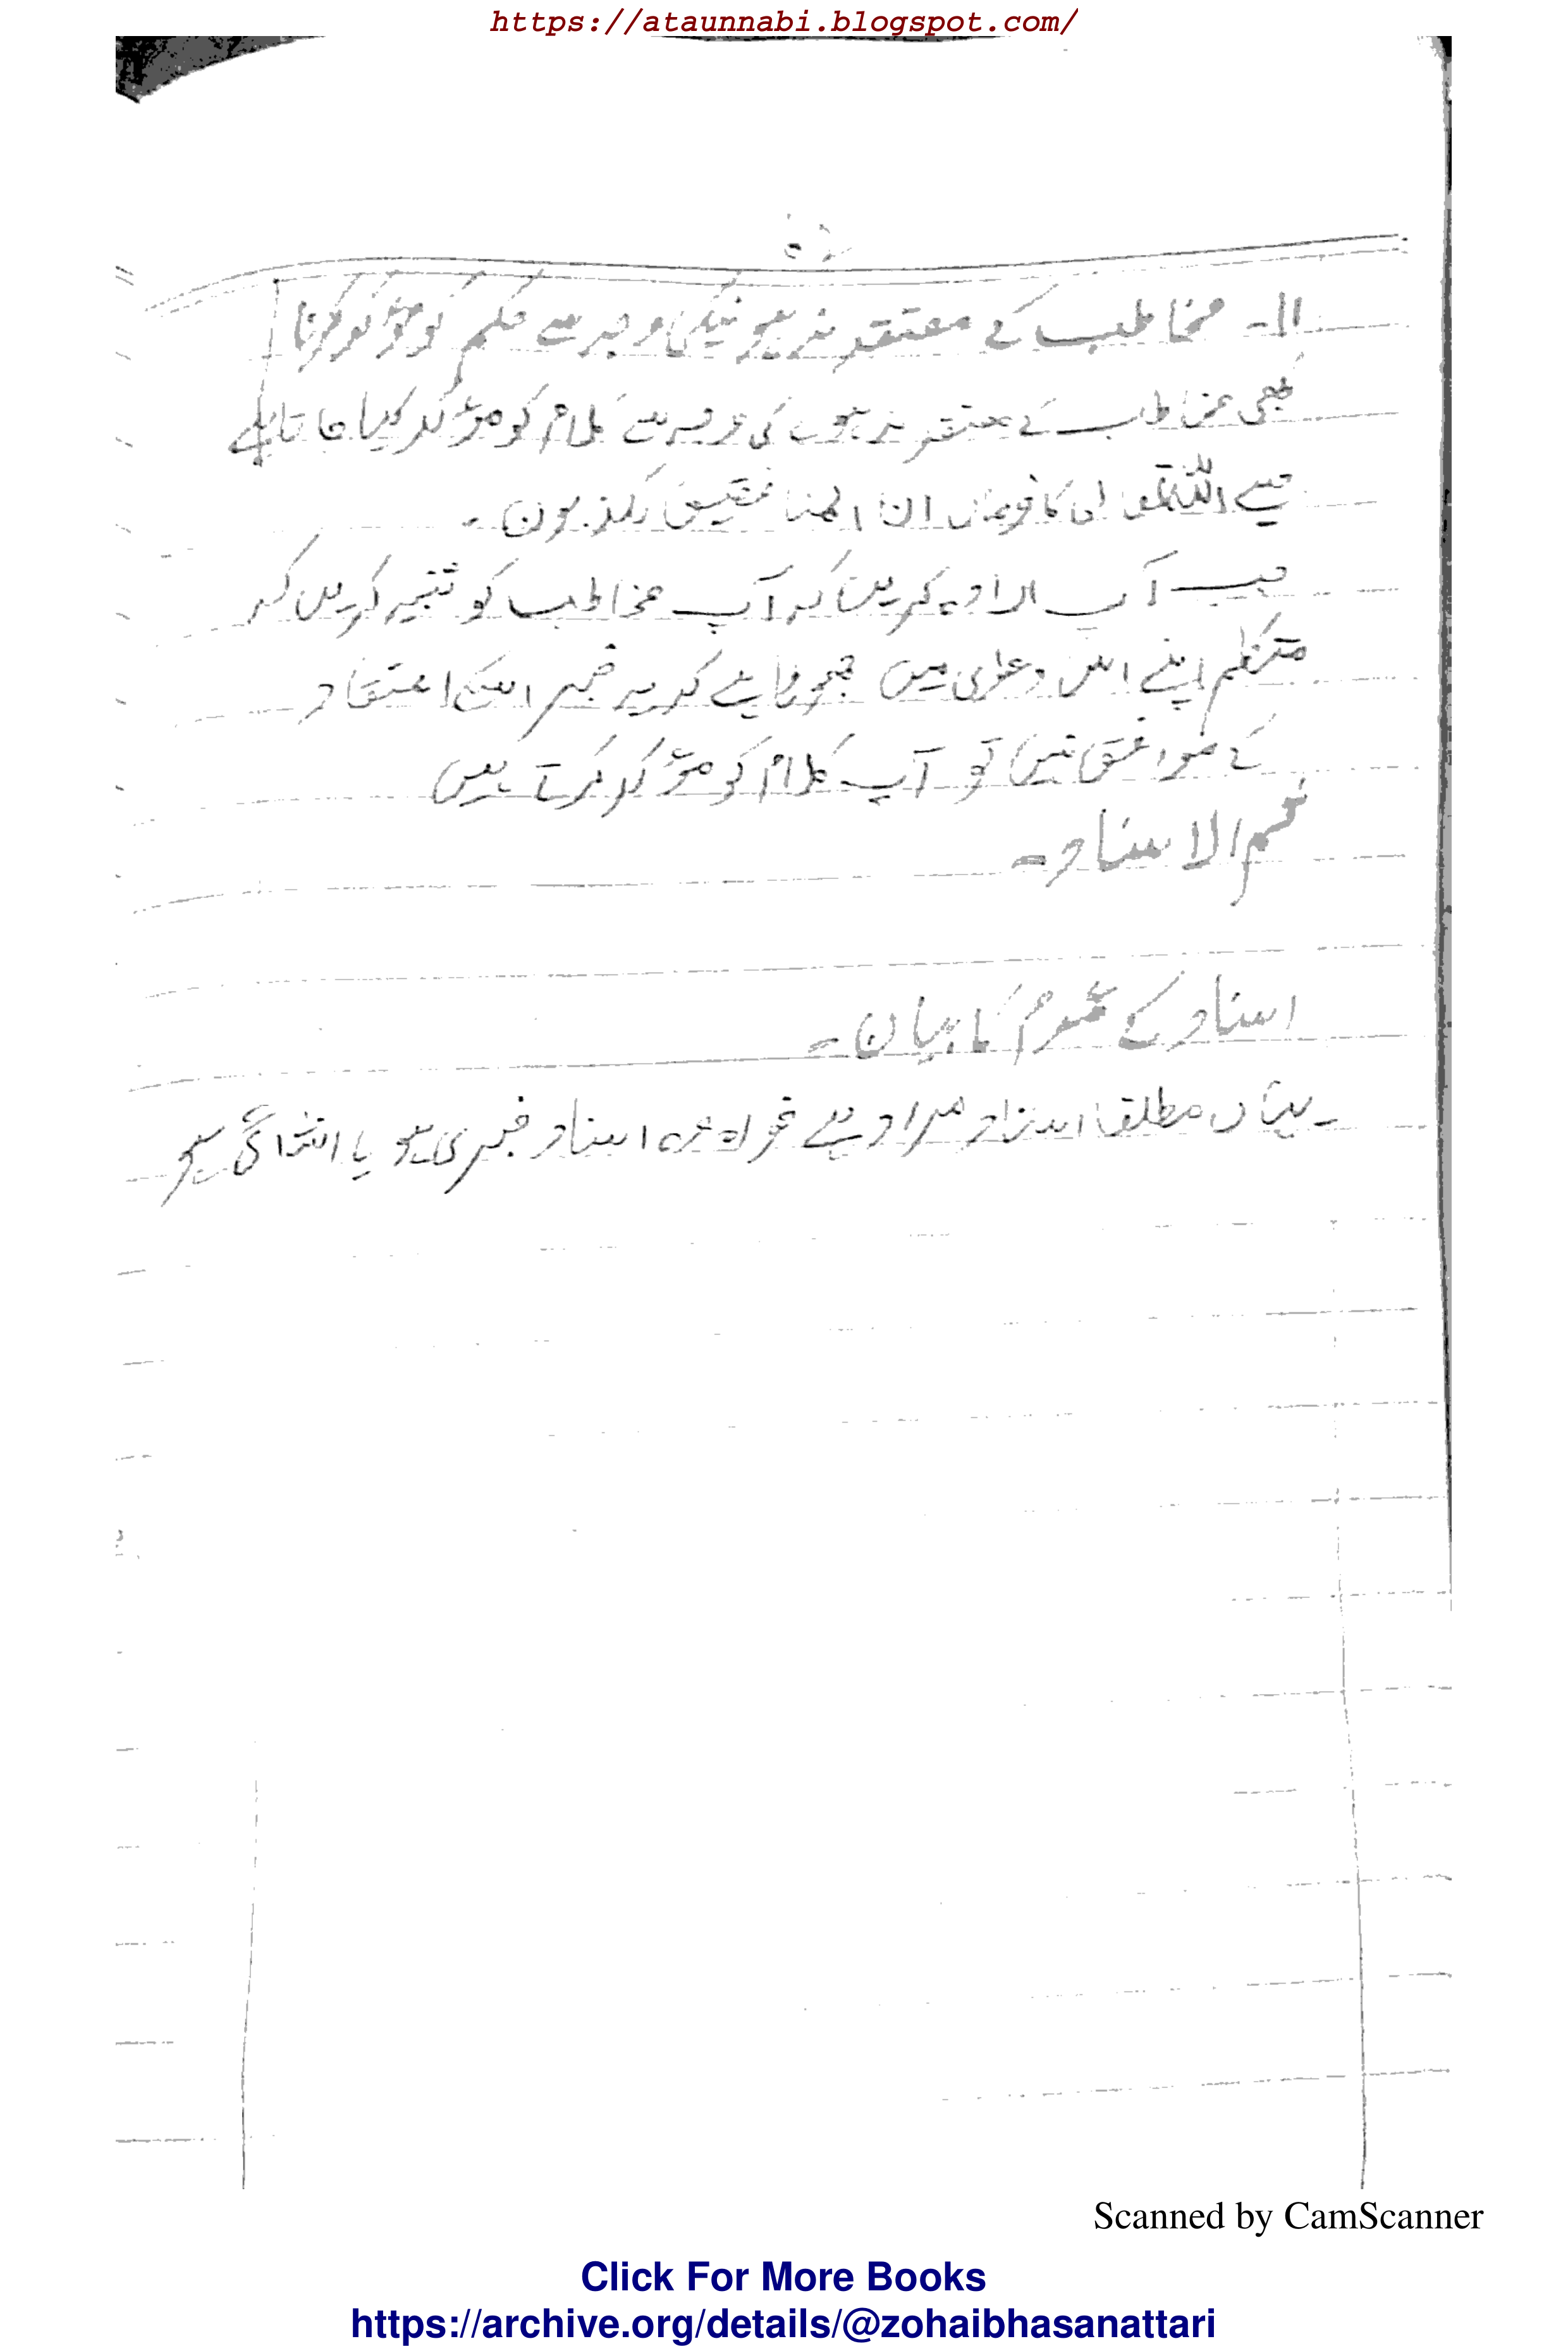 https://ataunnabi.blogspot.com/
۱۱۔ مخاطب کے معتقد نہ ہونیکی وجہ سے حکم کو مؤکد کرنا
کبھی مخاطب کے معتقد نہ ہونے کی وجہ سے کلام کو مؤکد کیا جاتا ہے
جیسے اللہ تعالی کا فرمان ان المنافقین لکذبون۔
جب آپ ارادہ کریں کہ آپ مخاطب کو تنبیہ کریں کہ
متکلم اپنے اس دعوی میں جھوٹا ہے کہ یہ خبر اسکے اعتقاد
کے موافق نہیں تو آپ کلام کو مؤکد کرتے ہیں
ثم الاسناد۔
اسناد کے عموم کا بیان۔
یہاں مطلقا اسناد مراد ہے خواہ وہ اسناد خبری ہو یا انشائی ہو
Scanned by CamScanner
Click For More Books
https://archive.org/details/@zohaibhasanattari